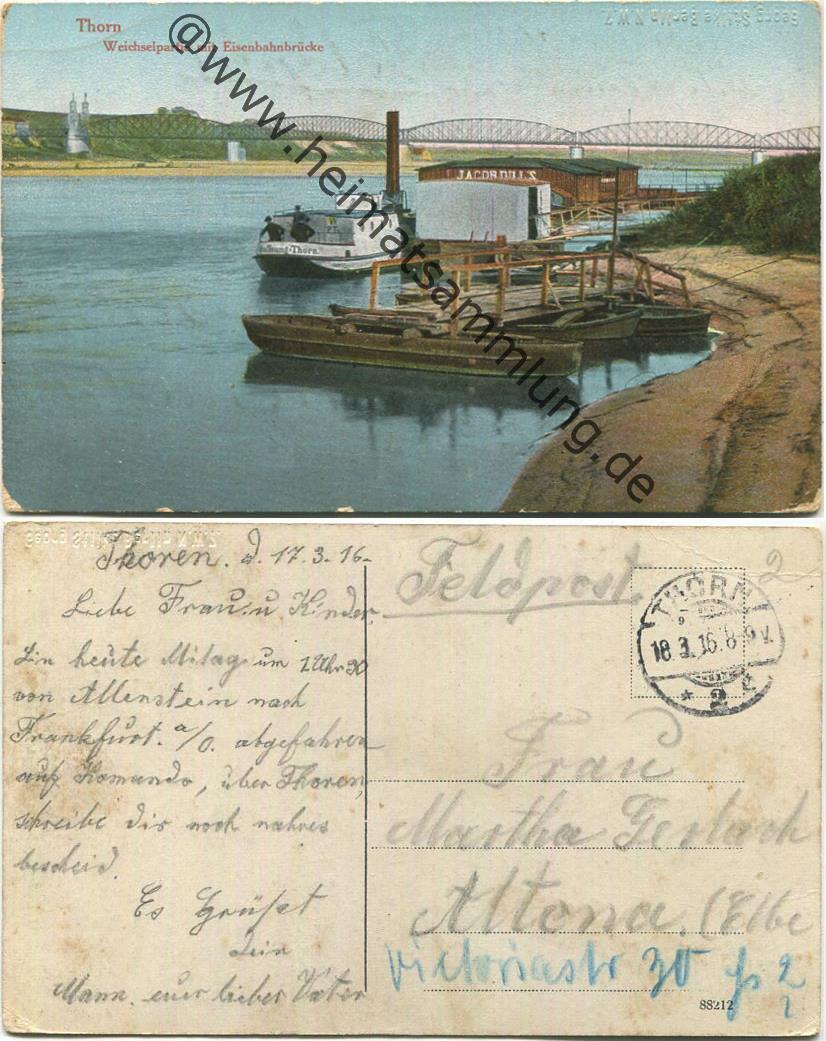 Thorn
Weichselpartie mit Eisenbahnbrücke
Georg Stilke Berlin N.W.7.
@www.heimatsammlung.de
JACOB DILL'S
Hoffnung-Thorn
Georg Stilke Berlin N.W.7.
Thoren. d. 17.3.16.
Liebe Frau. u Kinder,
bin heute Mitag um 1 Uhr 30
von Allenstein nach
Frankfurt. a/O. abgefahren
auf Komando, über Thoren,
schreibe dir noch nahres
bescheid.
Es Grüßt
dein
Mann. euer lieber Vater
Feldpost
2
THORN
18.3.16.8-9V.
* 2 c
Frau
Martha Gerlach
Altona. (Elbe
Victoriastr 30 2
88212